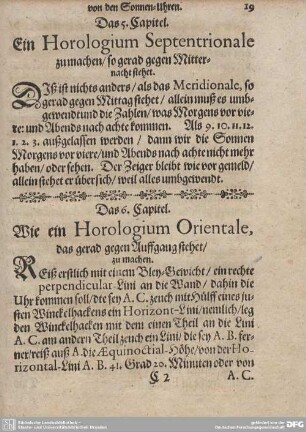 von den Sonnen-Uhren. 19
Das 5. Capitel.
Ein Horologium Septentrionale
zu machen / so gerad gegen Mitter-
nacht stehet.
DIß ist nichts anders / als das Meridionale, so
gerad gegen Mittag stehet / allein muß es umb-
gewendt und die Zahlen / was Morgens vor vie-
re: und Abends nach achte kommen. Als 9. 10. 11. 12.
1. 2. 3. außgelassen werden / dann wir die Sonnen
Morgens vor viere / und Abends nach achte nicht mehr
haben / oder sehen. Der Zeiger bleibt wie vor gemeld /
allein stehet er übersich / weil alles umbgewendt.
Das 6. Capitel.
Wie ein Horologium Orientale,
das gerad gegen Auffgang stehet /
zu machen.
REiß erstlich mit einem Bley-Gewicht / ein rechte
perpendicular-Lini an die Wand / dahin die
Uhr kommen soll / die sey A. C. zeuch mit Hülff eines ju-
sten Winckelhackens ein Horizont-Lini / nemlich / leg
den Winckelhacken mit dem einen Theil an die Lini
A. C. am andern Theil zeuch ein Lini / die sey A. B. fer-
ner / reiß auß A. die Æquinoctial-Höhe / von der Ho-
rizontal-Lini A. B. 41. Grad 20. Minuten oder von
C 2 A. C.